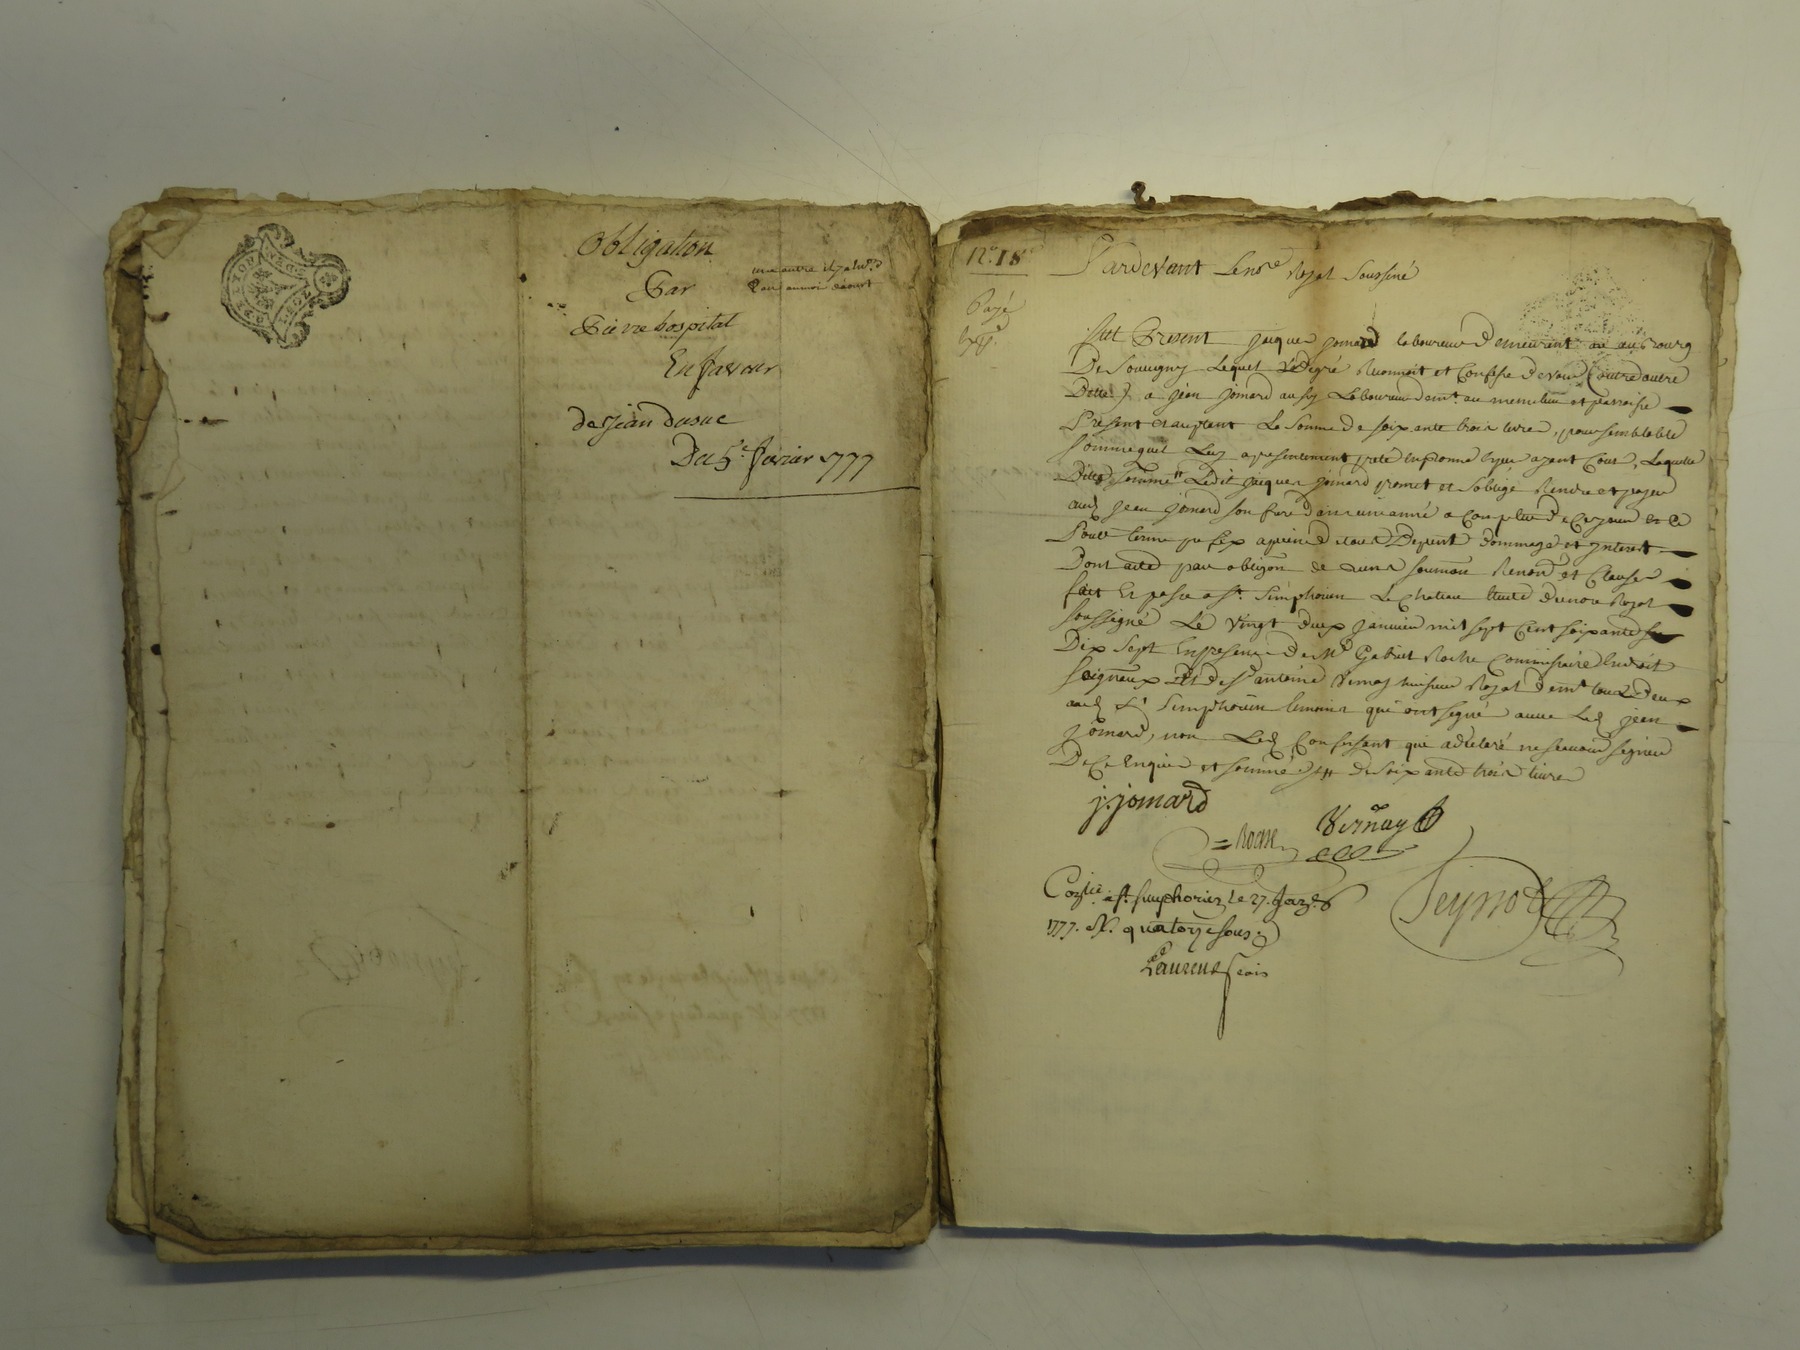 Obligation
Par
une autre il y a
Pierre hospital
En faveur
de Jean dusuc
Du 5e fevrier 1777
GENER LYON
N.° 18
Pardevant Le nore Royal Soussiné
Payé
fut Present jaques jomard laboureur Demeurent au Bourg
De Souvigny Lequel de Gré Reconnoit et Confesse devoir (outre autre
Dette) a jean jomard aussy Laboureur demt. au meme lieu et parroisse
Present et aceptent La Somme de soixante trois livres, pour semblable
somme quil Luy a presentement prete en bonne espece ayent Cour, Laquelle
Ditte Somme Ledit jaques jomard promet et s'oblige Rendre et payer
aud jean jomard son frere dans une année a Compter de Ce jour et Ce
Pour terme prefix a peine de tous Depent dommage et interest
Dont acte par obligon de
fait Et passé a St. Simphorien Le Chateau Etude du nore Royal
soussigné Le Vingt deux janvier mil sept Cent soixante
Dix Sept En presence de Mr Gabriel Roche Commissaire En droit
seigneux Et de Sr antoine Vernay huissier Royal demt tous Deux
aud St Simphorien temoins qui ont signé avec Led jean
jomard, non Led Confessent qui a declaré ne scavoir signer
De Ce Enquis et sommé de soixante trois livres
j. jomard
Roche Vernay
Peynot
Conlé. a St. simphorien le 27. Janr.
1777. R. quatorze sous.
Laurenson